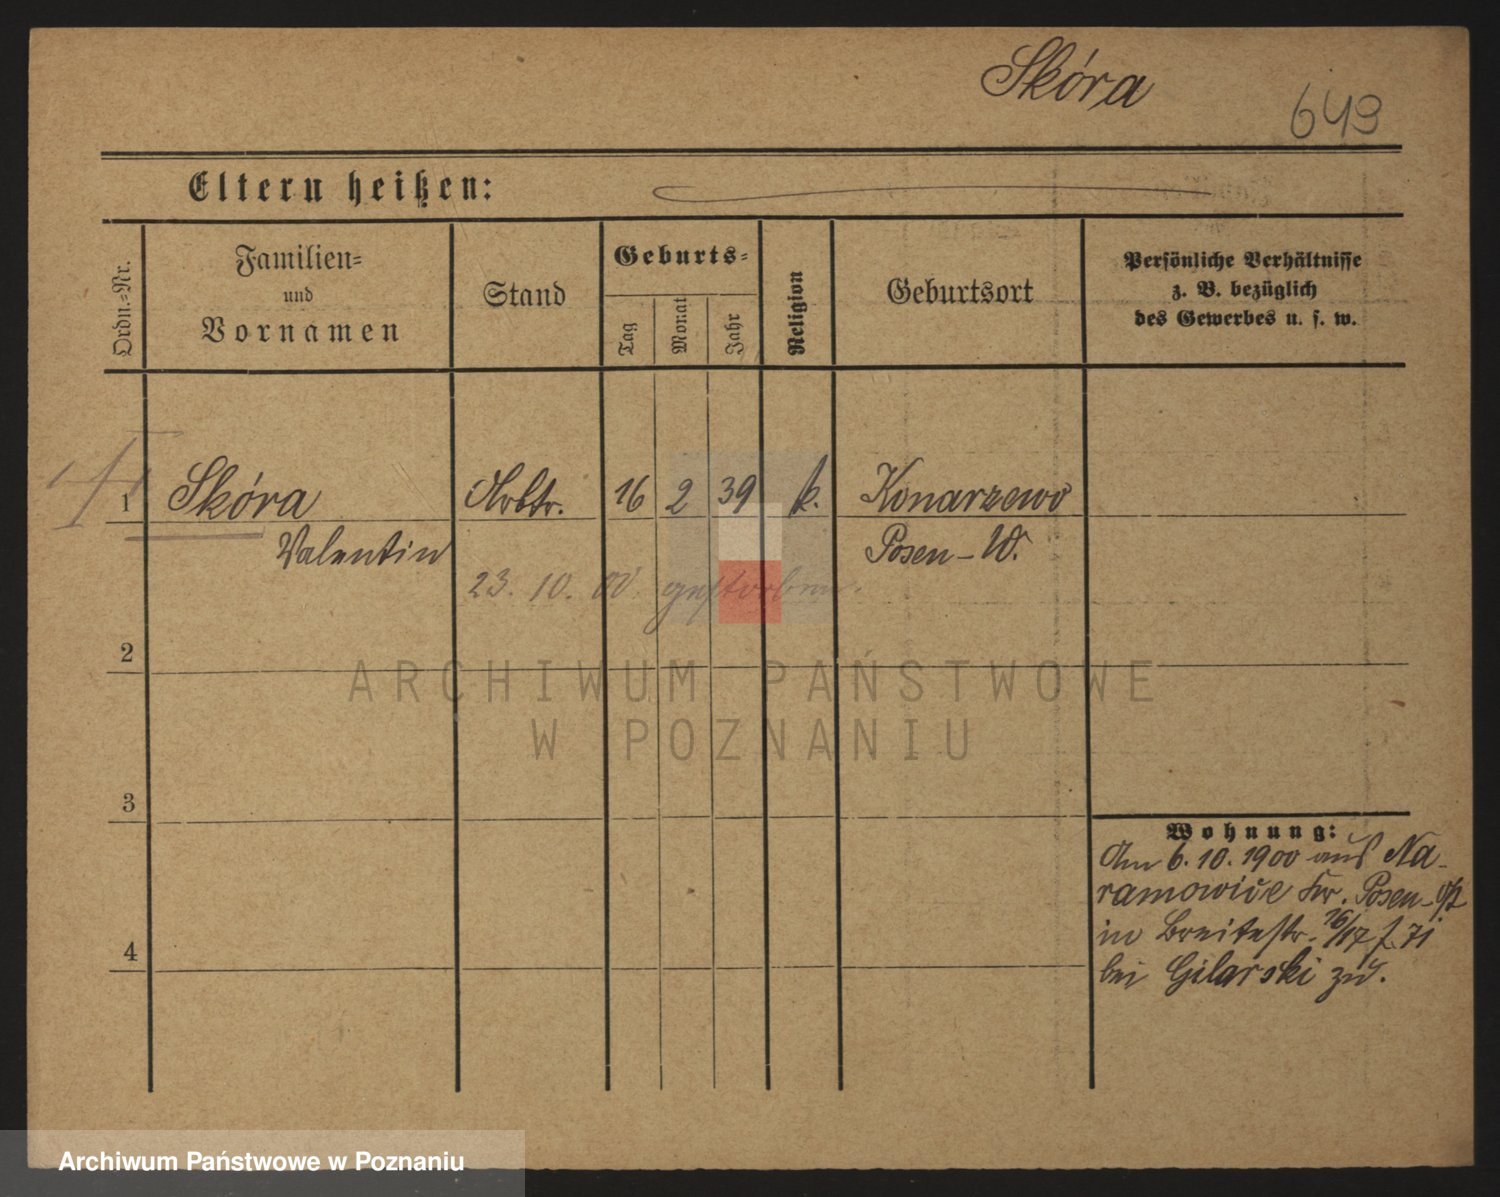 Skóra
649
Eltern heißen:
Ordn.=Nr.
Familien=
und
Vornamen
Stand
Geburts=
Tag
Monat
Jahr
Religion
Geburtsort
Persönliche Verhältnisse
z. B. bezüglich
des Gewerbes u. s. w.
1 Skóra Arbtr. 16 2 39 k. Konarzewo
Valentin Posen-W.
23. 10. 00 gestorben.
2
ARCHIWUM PAŃSTWOWE
W POZNANIU
3
Wohnung:
Am 6. 10. 1900 aus Na-
ramowice Kr. Posen-Ost
in Breitestr. 16/17 f. 71
bei Gilarski zu.
4
Archiwum Państwowe w Poznaniu